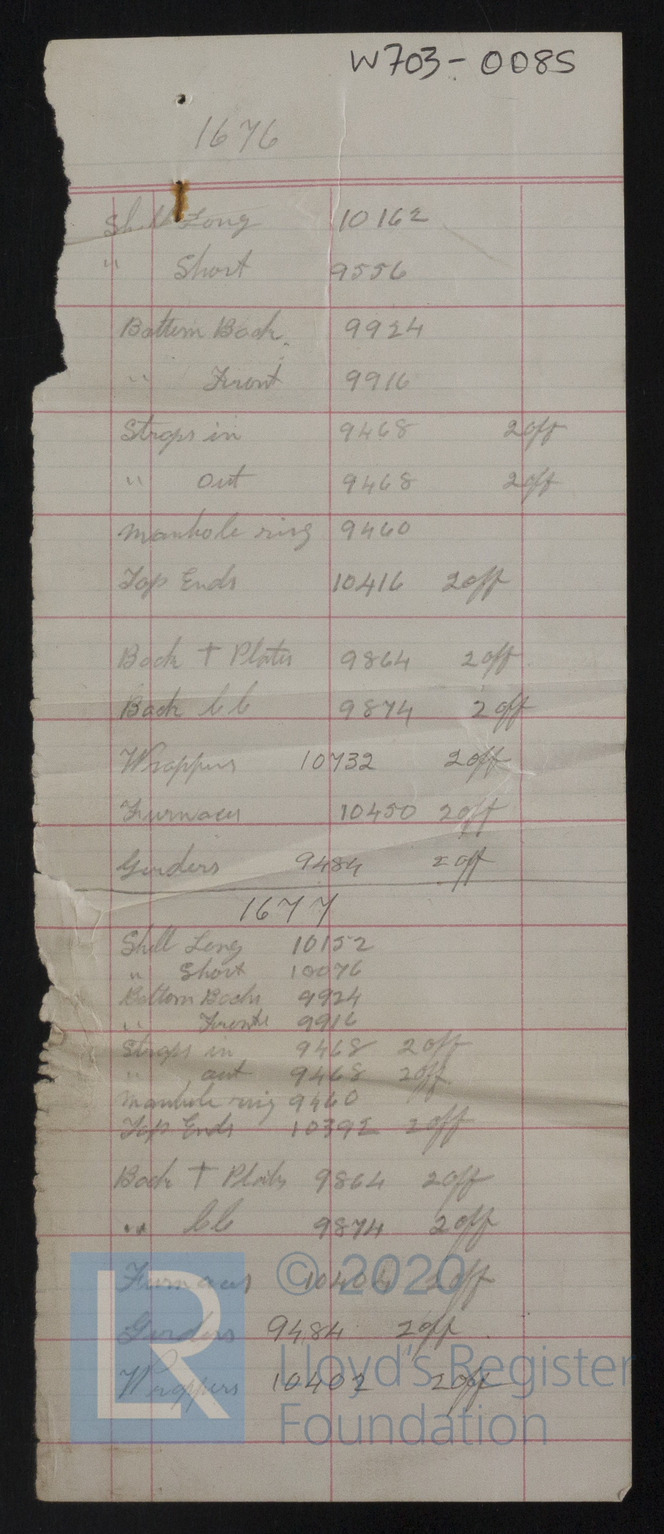 W703-0085
1676
Shell Long 10162
" Short 9556
Bottom Back 9924
" Front 9916
Straps in 9468 2 off
" out 9468 2 off
Manhole ring 9460
Top Ends 10416 2 off
Back T Plates 9864 2 off
Back CC 9874 2 off
Wrappers 10732 2 off
Furnaces 10450 2 off
Girders 9484 2 off
1677
Shell Long 10152
" Short 10076
Bottom Backs 9924
" Fronts 9916
Straps in 9468 2 off
" out 9468 2 off
Manhole ring 9460
Top Ends 10392 2 off
Back T Plates 9864 2 off
" CC 9874 2 off
Furnaces 2 off
Girders 9484 2 off
Wrappers 10402 2 off
LR
© 2020
Lloyd's Register
Foundation